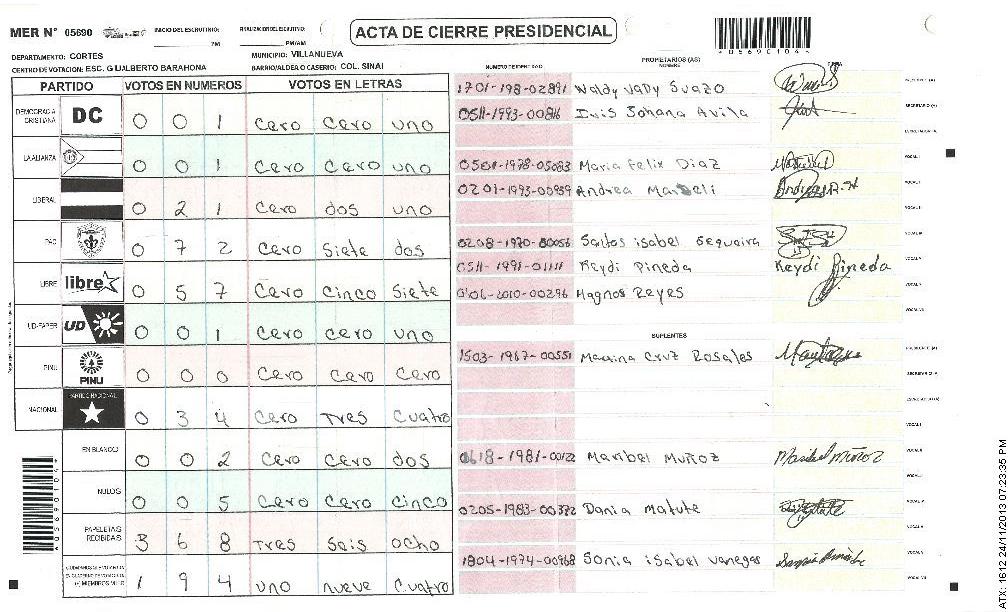 MER N° 05690
INICIO DEL ESCRUTINIO:
PM
FINALIZACION DEL ESCRUTINIO:
PM/AM
ACTA DE CIERRE PRESIDENCIAL
*05690104*
DEPARTAMENTO: CORTES
MUNICIPIO: VILLANUEVA
CENTRO DE VOTACION: ESC. GUALBERTO BARAHONA
BARRIO/ALDEA O CASERIO: COL. SINAI
PARTIDO VOTOS EN NUMEROS VOTOS EN LETRAS
DEMOCRACIA CRISTIANA DC 0 0 1 Cero Cero uno
LA ALIANZA 0 0 1 Cero Cero uno
LIBERAL 0 2 1 Cero dos uno
PAC 0 7 2 Cero Siete dos
LIBRE libre 0 5 7 Cero Cinco Siete
UD-FAPER UD 0 0 1 Cero Cero uno
PINU PINU 0 0 0 Cero Cero Cero
NACIONAL PARTIDO NACIONAL 0 3 4 Cero Tres Cuatro
EN BLANCO 0 0 2 Cero Cero dos
NULOS 0 0 5 Cero Cero Cinco
PAPELETAS RECIBIDAS 3 6 8 Tres Seis ocho
1 9 4 uno nueve Cuatro
NUMERO DE IDENTIDAD
PROPIETARIOS (AS)
NOMBRE
FIRMA
1701-198-02891 Waldy Vady Suazo
0511-1993-00816 Iris Johana Avila
0501-1978-05083 Maria Felix Diaz
0201-1993-00939 Andrea
0208-1970-00056 Santos isabel Sequeira
0511-1991-01111 Keydi Pineda Keydi Pineda
-2010-00296 Magnos Reyes
SUPLENTES
1503-1967-00551 Marina Cruz Rosales
0618-1981-00122 Maribel Muñoz Maribel Muñoz
0205-1983-00372 Dania Matute
1804-1974-00968 Sonia isabel vanegas
*05690104*
ATX: 1612 24/11/2013 07:23:35 PM